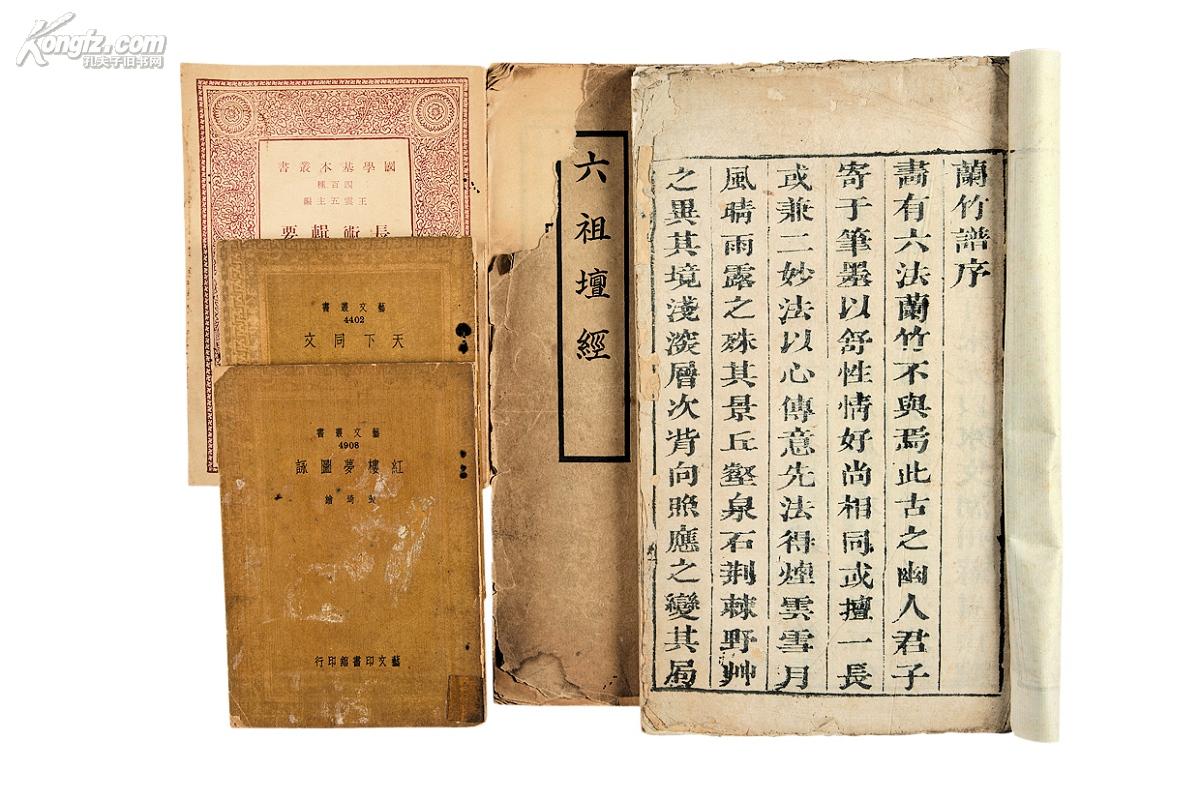 Kongfz.com
孔夫子旧书网
國學基本叢書
四百種
王雲五主編
長術輯要
藝文叢書
4402
天下同文
藝文叢書
4908
紅樓夢圖詠
繪
藝文印書館印行
六祖壇經
蘭竹譜序
畵有六法蘭竹不與焉此古之幽人君子
寄于筆墨以舒性情好尚相同或擅一長
或兼二妙法以心傳意先法得煙雲雪月
風晴雨露之殊其景丘壑泉石荆棘野艸
之異其境淺深層次背向照應之變其局